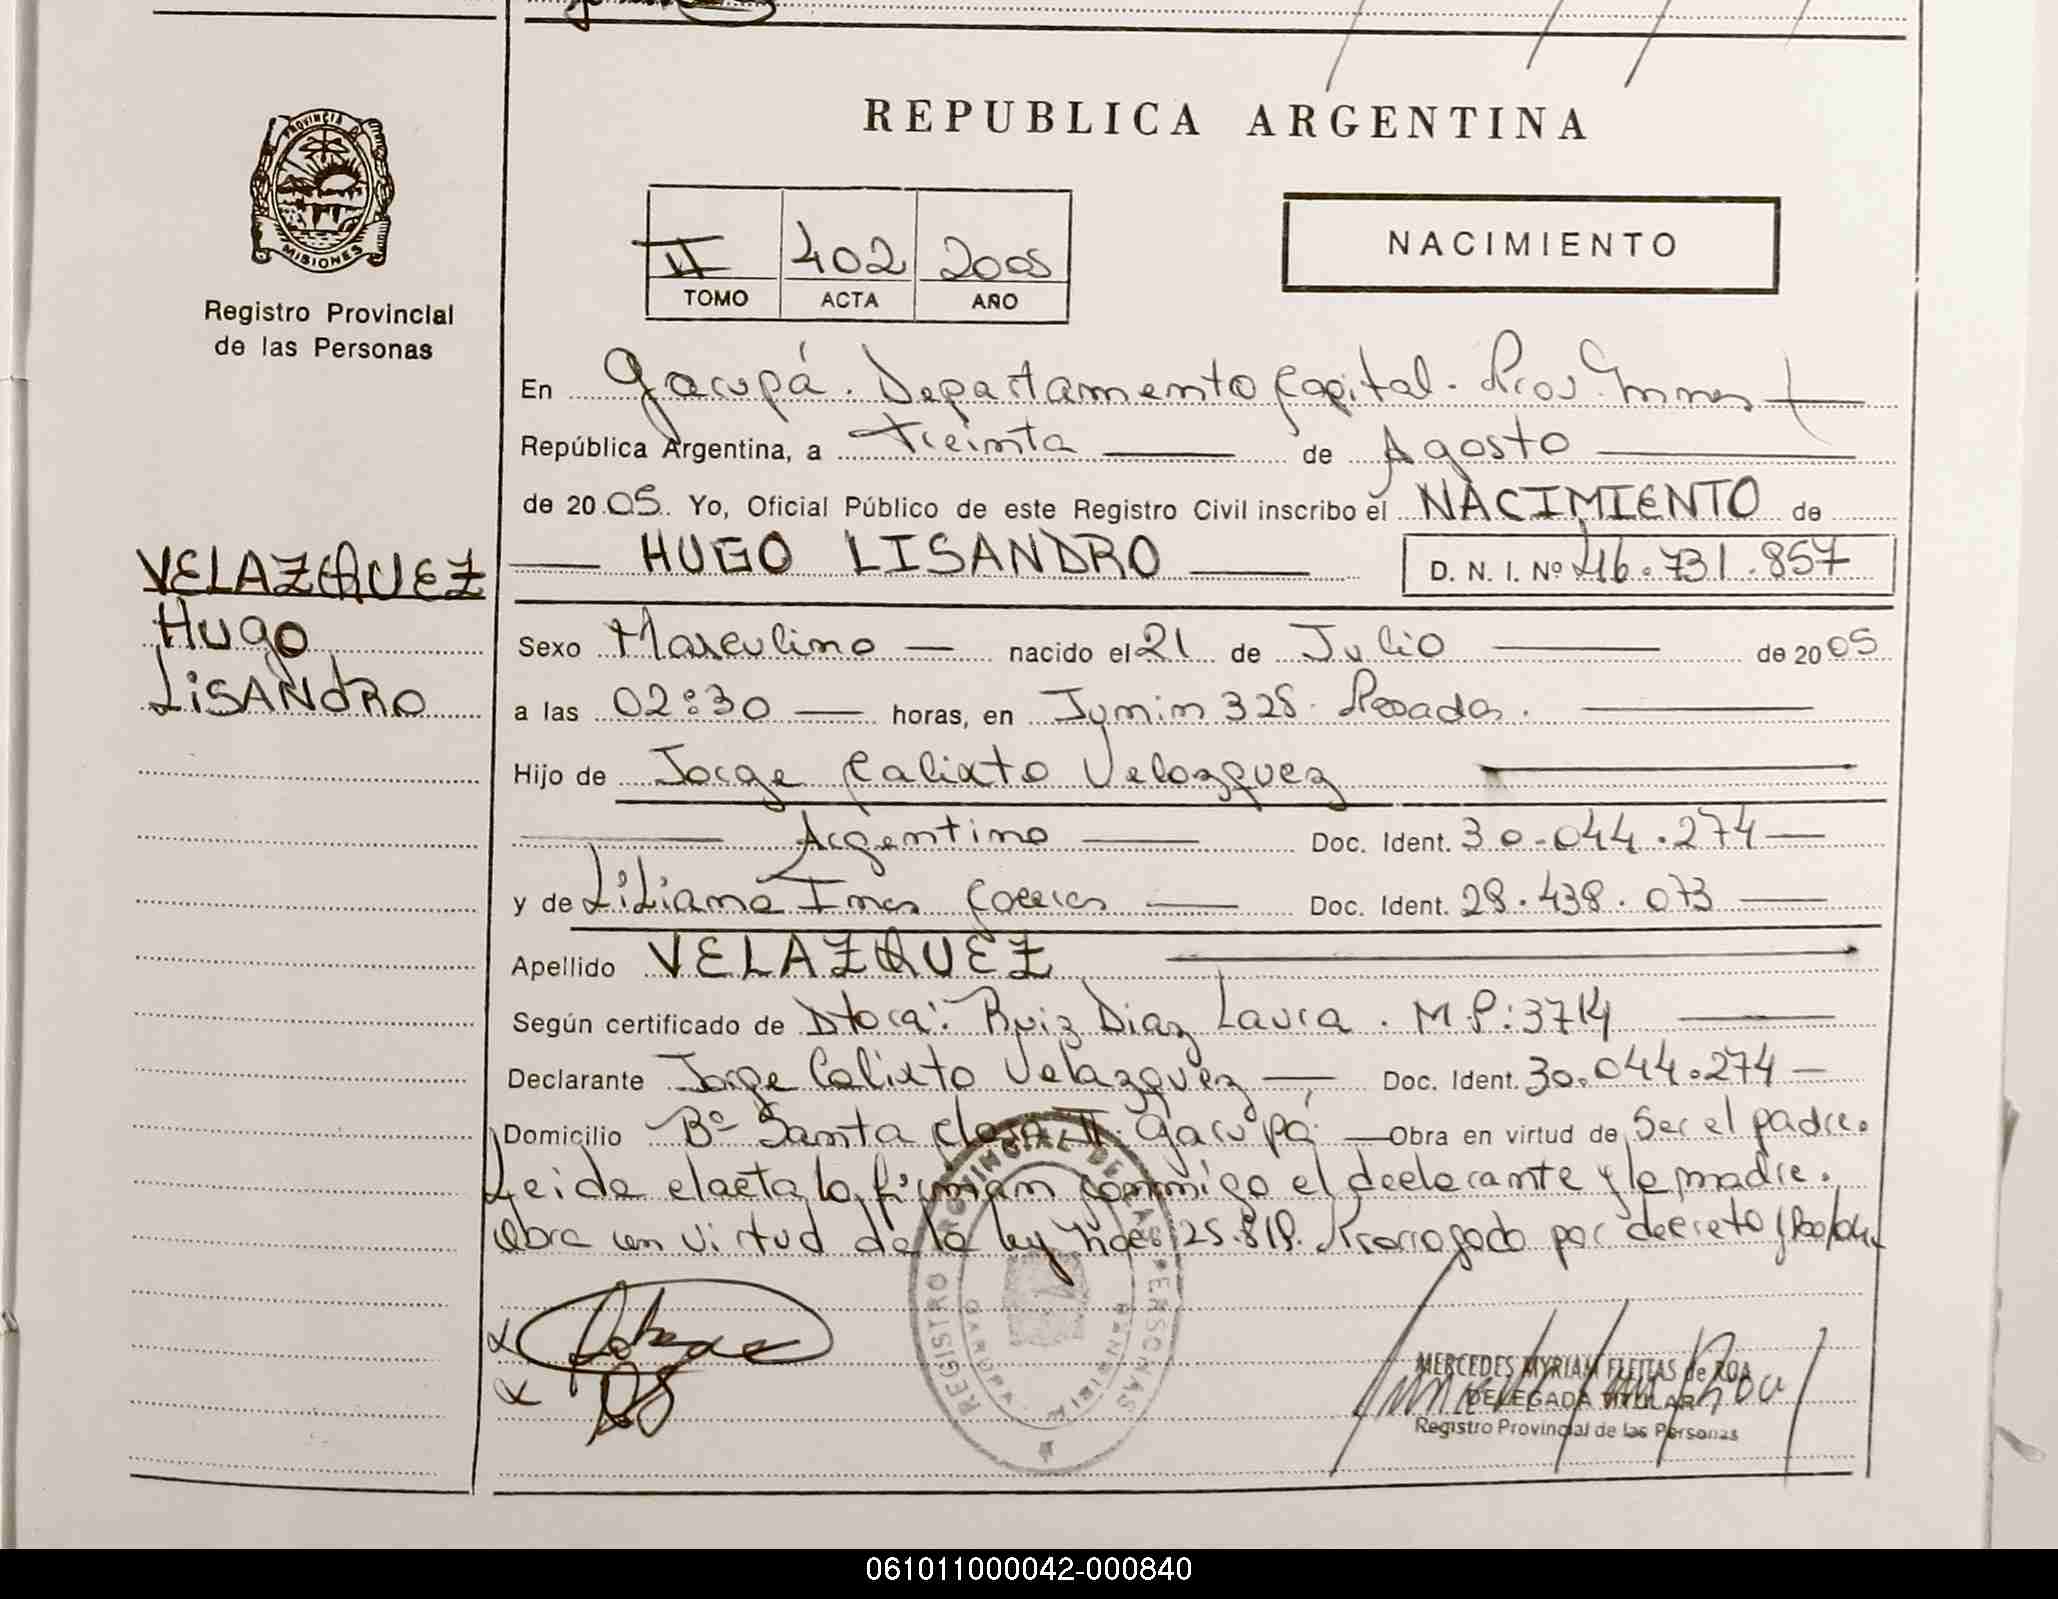 REPUBLICA ARGENTINA
PROVINCIA D
MISIONES
Registro Provincial
de las Personas
II 402 2005
TOMO ACTA AÑO
NACIMIENTO
En Garupá. Departamento Capital. Prov. Mnes
República Argentina, a treinta de Agosto
de 2005. Yo, Oficial Público de este Registro Civil inscribo el NACIMIENTO de
HUGO LISANDRO D. N. I. Nº 46.731.857
VELAZQUEZ
Hugo
LiSANdRO
Sexo Masculino nacido el 21 de Julio de 2005
a las 02:30 horas, en Junin 328. Posadas.
Hijo de Jorge Calixto Velazquez
Argentino Doc. Ident. 30.044.274
y de Liliana Ines Doc. Ident. 28.438.073
Apellido VELAZQUEZ
Según certificado de Dtora: Ruiz Diaz Laura. M.P: 3714
Declarante Jorge Calixto Velazquez Doc. Ident. 30.044.274
Domicilio Bº Santa Clara II. Garupá. Obra en virtud de Ser el padre.
Leida el acta la firman conmigo el declarante y la madre.
Obra en virtud de la ley 25.819. Prorrogado por decreto
REGISTRO PROVINCIAL DE LAS PERSONAS
MERCEDES MYRIAM FLEITAS de ROA
DELEGADA TITULAR
Registro Provincial de las Personas
061011000042-000840